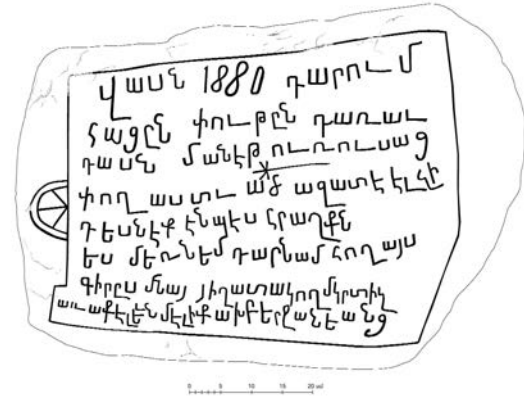 Վասն 1880 դարում
հացըն փութըն դառաւ
դասն մանէթ ուռուսաց
փող աստւած ազատէ էլ չի
դեսնէք էնպէս հրաղքն
ես մեռնեմ դարնամ հող այս
գիրըս մնայ յիղատակող մկրտիչ
մէլիք
0 5 10 15 20 սմ